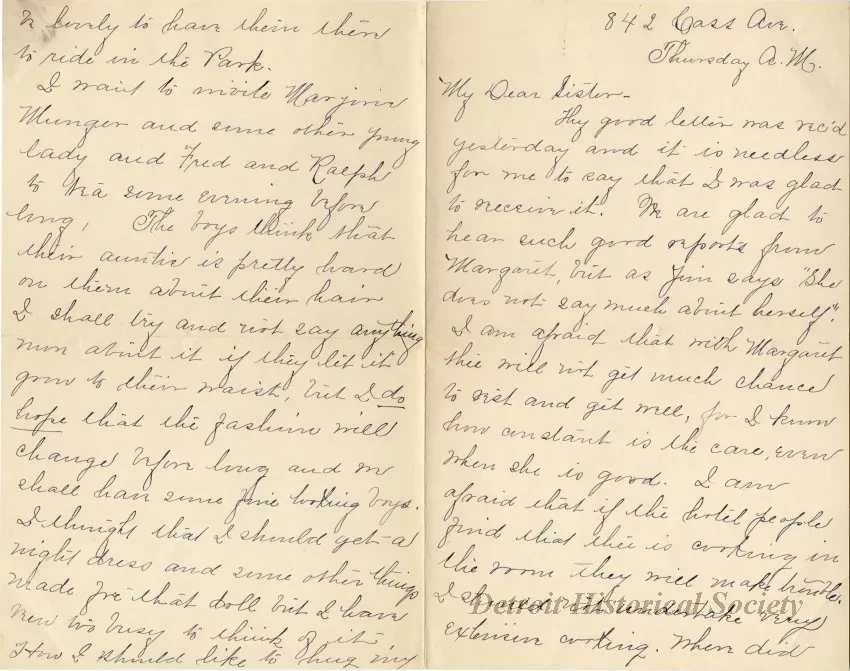 842 Cass Ave.
Thursday A.M.
My Dear Sister-
Thy good letter was rec'd
yesterday and it is needless
for me to say that I was glad
to receive it. We are glad to
hear such good reports from
Margaret, but as Jim says "She
does not say much about herself".
I am afraid that with Margaret
thee will not get much chance
to rest and get well, for I know
how constant is the care, even
when she is good. I am
afraid that if the hotel people
find that thee is cooking in
the room they will make trouble.
I should not undertake very
extensive cooking. Where did
be lovely to have them then
to ride in the Park.
I want to invite Marjorie
Munger and some other young
lady and Fred and Ralph
to tea some evening before
long, The boys think that
their auntie is pretty hard
on them about their hair
I shall try and not say anything
more about it if they let it
grow to their waist, but I do
hope that the fashion will
change before long and we
shall have some fine looking boys.
I thought that I should get a
night dress and some other things
made for that doll but I have
been too busy to think of it.
How I should like to hug my
Detroit Historical Society